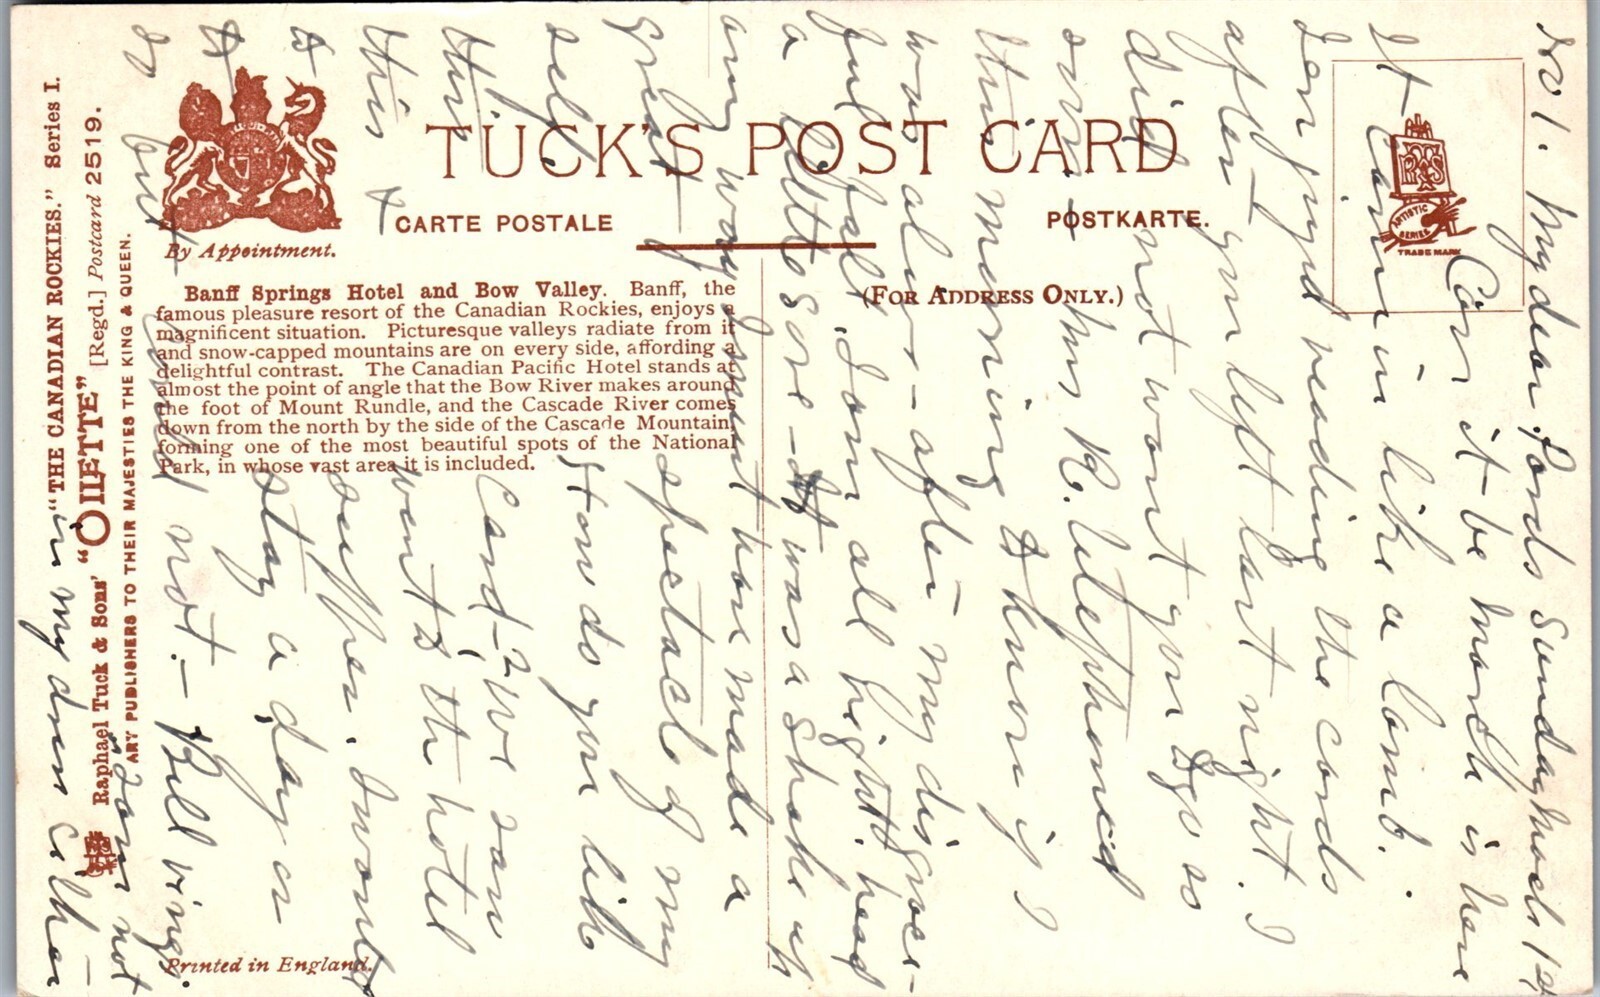 "THE CANADIAN ROCKIES." Series I.
Raphael Tuck & Sons' "OILETTE" [Regd.] Postcard 2519.
ART PUBLISHERS TO THEIR MAJESTIES THE KING & QUEEN.
By Appointment.
TUCK'S POST CARD
CARTE POSTALE
POSTKARTE.
(FOR ADDRESS ONLY.)
RTS
ARTISTIC
SERIES
TRADE MARK
Banff Springs Hotel and Bow Valley. Banff, the
famous pleasure resort of the Canadian Rockies, enjoys a
magnificent situation. Picturesque valleys radiate from it
and snow-capped mountains are on every side, affording a
delightful contrast. The Canadian Pacific Hotel stands at
almost the point of angle that the Bow River makes around
the foot of Mount Rundle, and the Cascade River comes
down from the north by the side of the Cascade Mountain,
forming one of the most beautiful spots of the National
Park, in whose vast area it is included.
Printed in England.
No 1. My dear Sunday March 1st
Can it be March is here
It came in like a lamb.
I enjoyed reading the cards
after you left last night. I
did not want you to go so
soon. Mrs R. telephoned
this morning to know if I
was alive - after my disgrace-
ful fall. I am all right. head
a little sore - It was a shake up
any way I must have made a
great spectacle of my
self How do you like
this card? We ran
this & went to the hotel
to supper. I wanted
to stay a day or
so but could not. - Bill rings.
I am not
in my dress either